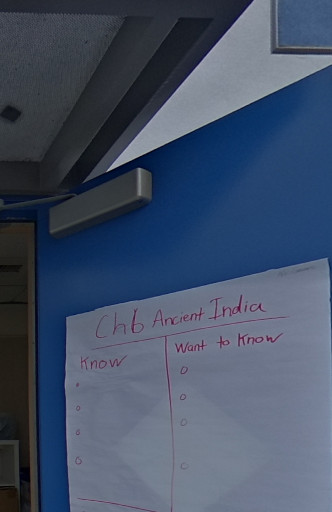 Ch6 Ancient India
Know
Want to Know